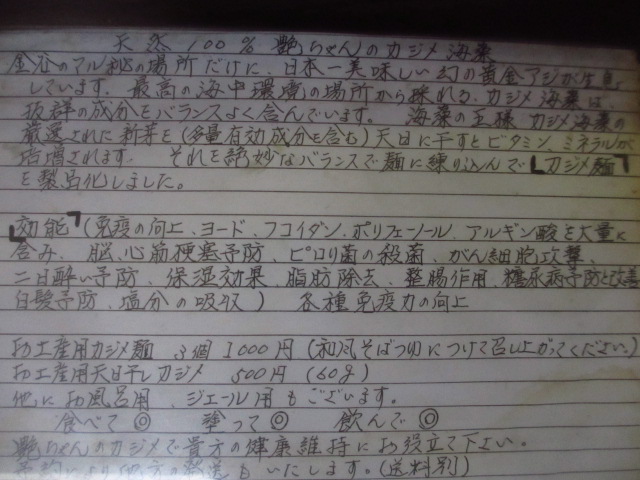 天然100%艶ちゃんのカジメ海藻
金谷のマル秘の場所だけに、日本一美味しい幻の黄金アジが生息
しています。最高の海中環境の場所から採れる、カジメ海藻は、
抜群の成分をバランスよく含んでいます。海藻の王様カジメ海藻の
厳選された新芽を(多量有効成分を含む)天日に干すとビタミン、ミネラルが
倍増されます。それを絶妙なバランスで麺に練り込んで「カジメ麺」
を製品化しました。
「効能」(免疫の向上、ヨード、フコイダン、ポリフェノール、アルギン酸を大量に
含み、脳、心筋梗塞予防、ピロリ菌の殺菌、がん細胞攻撃、
二日酔い予防、保湿効果、脂肪除去、整腸作用、糖尿病予防と改善
白髪予防、塩分の吸収)各種免疫力の向上
お土産用カジメ麺 3個 1000円(和風そばつゆにつけて召し上がってください。)
お土産用天日干しカジメ 500円(60g)
他にお風呂用、ジェール用もございます。
食べて◎ 塗って◎ 飲んで◎
艶ちゃんのカジメで貴方の健康維持にお役立て下さい。
予約により地方の発送もいたします。(送料別)